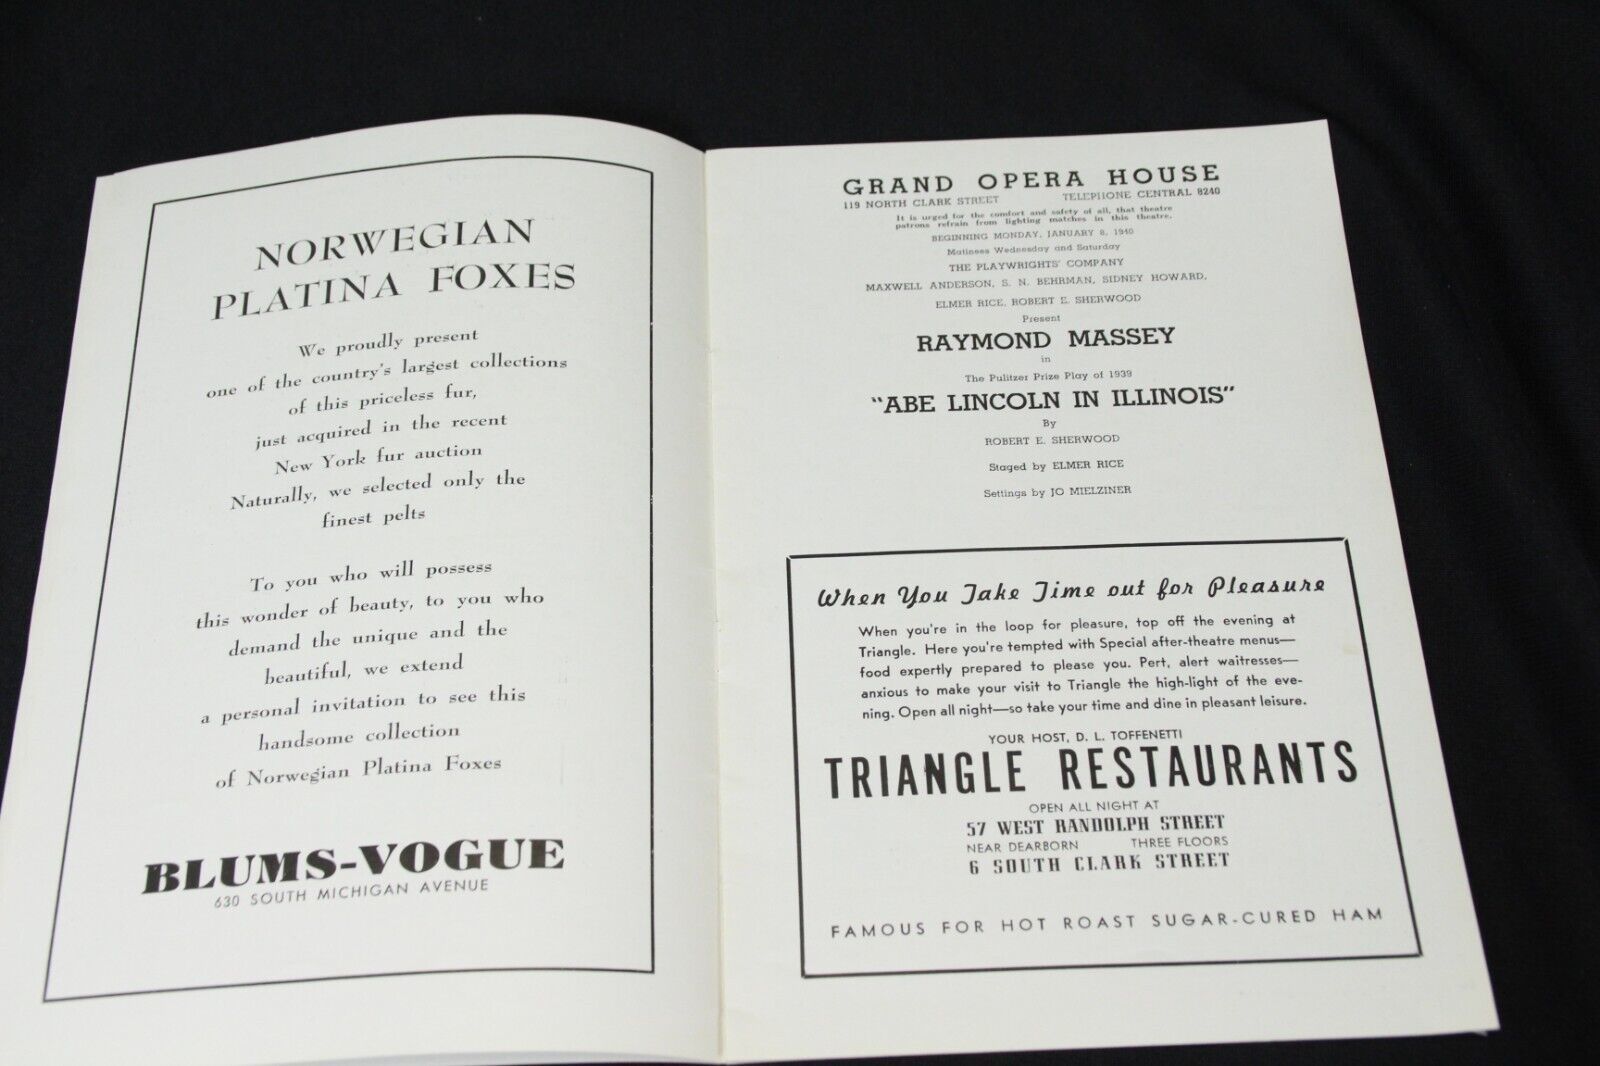 NORWEGIAN
PLATINA FOXES
We proudly present
one of the country's largest collections
of this priceless fur,
just acquired in the recent
New York fur auction
Naturally, we selected only the
finest pelts
To you who will possess
this wonder of beauty, to you who
demand the unique and the
beautiful, we extend
a personal invitation to see this
handsome collection
of Norwegian Platina Foxes
BLUMS-VOGUE
630 SOUTH MICHIGAN AVENUE
GRAND OPERA HOUSE
119 NORTH CLARK STREET TELEPHONE CENTRAL 8240
It is urged for the comfort and safety of all, that theatre
patrons refrain from lighting matches in this theatre.
BEGINNING MONDAY, JANUARY 8, 1940
Matinees Wednesday and Saturday
THE PLAYWRIGHTS' COMPANY
MAXWELL ANDERSON, S. N. BEHRMAN, SIDNEY HOWARD,
ELMER RICE, ROBERT E. SHERWOOD
Present
RAYMOND MASSEY
in
The Pulitzer Prize Play of 1939
"ABE LINCOLN IN ILLINOIS"
By
ROBERT E. SHERWOOD
Staged by ELMER RICE
Settings by JO MIELZINER
When You Take Time out for Pleasure
When you're in the loop for pleasure, top off the evening at
Triangle. Here you're tempted with Special after-theatre menus—
food expertly prepared to please you. Pert, alert waitresses—
anxious to make your visit to Triangle the high-light of the eve-
ning. Open all night—so take your time and dine in pleasant leisure.
YOUR HOST, D. L. TOFFENETTI
TRIANGLE RESTAURANTS
OPEN ALL NIGHT AT
57 WEST RANDOLPH STREET
NEAR DEARBORN THREE FLOORS
6 SOUTH CLARK STREET
FAMOUS FOR HOT ROAST SUGAR-CURED HAM